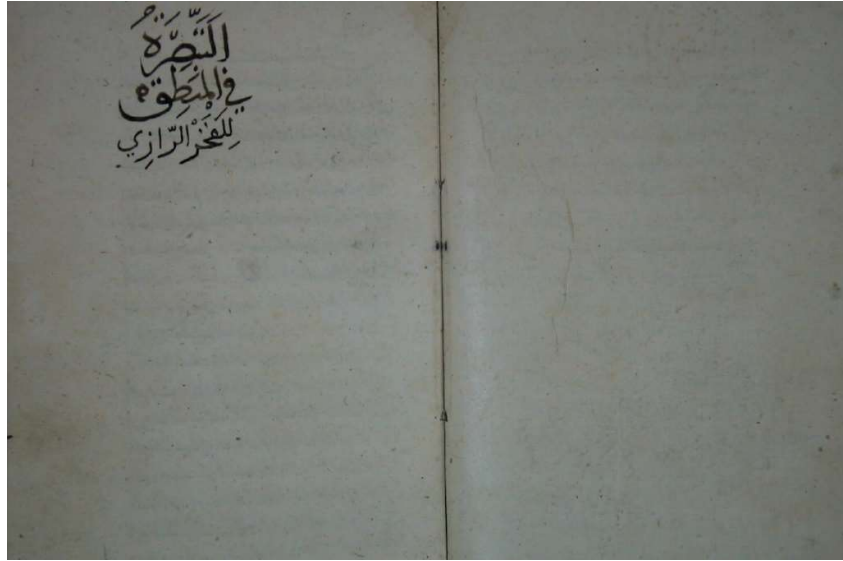 التَبَصِّرَةُ
في المنطِق
لِلفَخْر الرّازِي